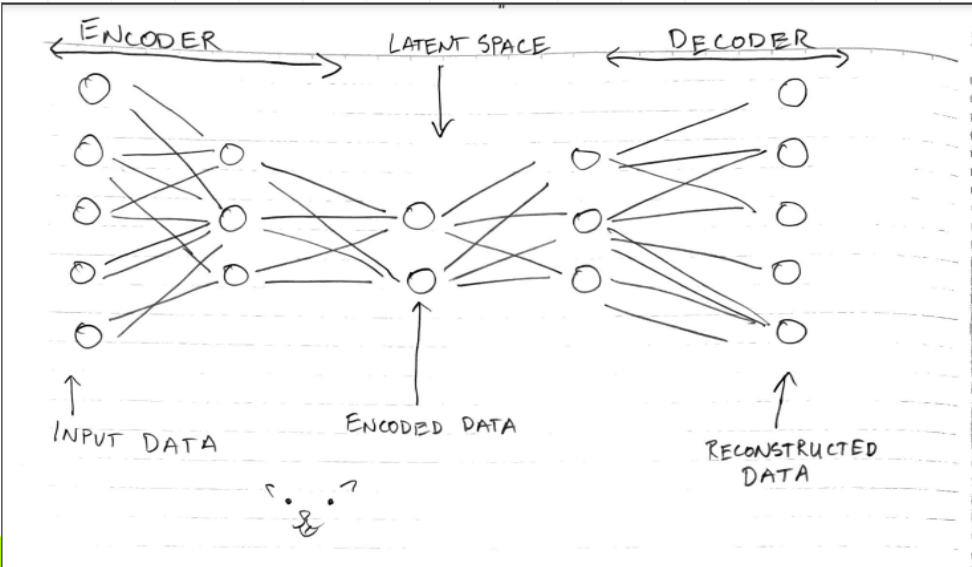 ENCODER
LATENT SPACE
DECODER
INPUT DATA
ENCODED DATA
RECONSTRUCTED
DATA